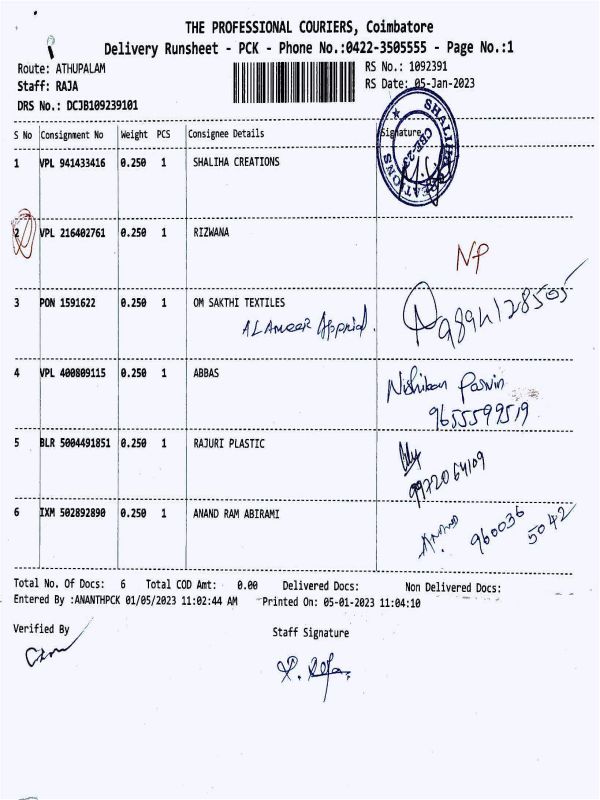 THE PROFESSIONAL COURIERS, Coimbatore
Delivery Runsheet - PCK - Phone No.:0422-3505555 - Page No.:1
Route: ATHUPALAM RS No.: 1092391
Staff: RAJA RS Date: 05-Jan-2023
DRS No.: DCJB109239101
S No Consignment No Weight PCS Consignee Details Signature
SHALIHA CREATIONS
CBE-23
1 VPL 941433416 0.250 1 SHALIHA CREATIONS
2 VPL 216402761 0.250 1 RIZWANA
NP
3 PON 1591622 0.250 1 OM SAKTHI TEXTILES
AL Ameer 9894128505
4 VPL 400809115 0.250 1 ABBAS
9655599519
5 BLR 5004491851 0.250 1 RAJURI PLASTIC
9972064109
6 IXM 502892890 0.250 1 ANAND RAM ABIRAMI
Anand 960036 5042
Total No. Of Docs: 6 Total COD Amt: 0.00 Delivered Docs: Non Delivered Docs:
Entered By :ANANTHPCK 01/05/2023 11:02:44 AM Printed On: 05-01-2023 11:04:10
Verified By
Staff Signature